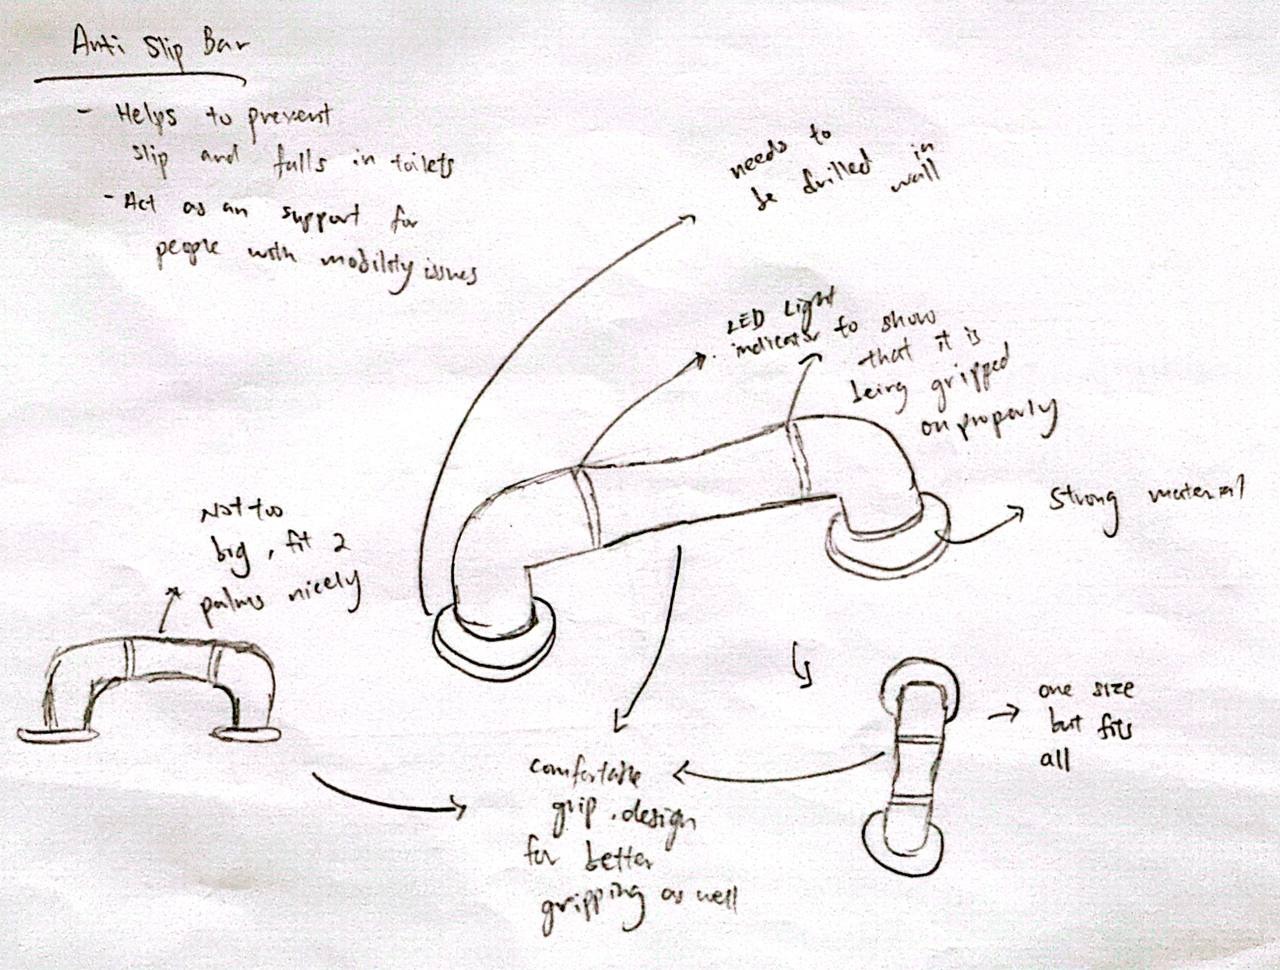 Anti Slip Bar
- Helps to prevent
slip and falls in toilets
- Act as an support for
people with mobility issues
needs to
be drilled in
wall
LED Light
indicator to show
that it is
being gripped
on properly
Strong material
Not too
big, fit 2
palms nicely
one size
but fits
all
comfortable
grip design
for better
gripping as well